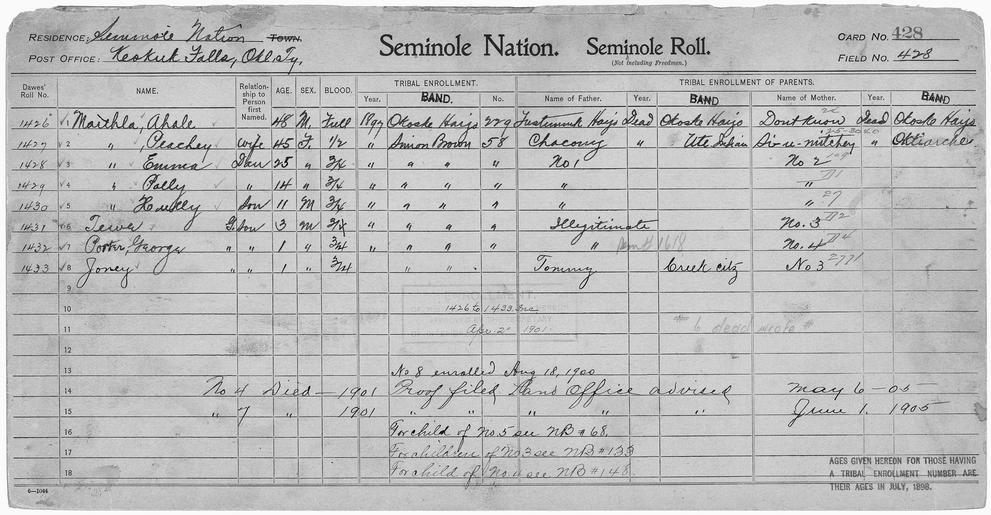 RESIDENCE: Seminole Nation TOWN.
POST OFFICE: Keokuk Falls, Okl. Ty.
Seminole Nation. Seminole Roll.
(Not including Freedmen.)
CARD NO. 428
FIELD NO. 428
Dawes' Roll No. NAME. Relationship to Person first Named. AGE. SEX. BLOOD. TRIBAL ENROLLMENT. TRIBAL ENROLLMENT OF PARENTS.
Year. BAND. No. Name of Father. Year. BAND Name of Mother. Year. BAND
1426 1 Maithla, Ahale 48 M. Full 1897 Okoske Hajo 229 Fustunnuk Hajo Dead Okoske Hajo Dont Know Dead Okoske Hajo
1427 2 " Peachey Wife 45 F. 1/2 " Simon Brown 58 Chacony " Ute Indian " Oktiarche
1428 3 " Emma Dau 25 " 3/4 " " " " No 1 No 2
1429 4 " Polly " 14 " 3/4 " " " " " "
1430 5 " Son 11 M 3/4 " " " " " "
1431 6 Tewa G. Son 3 M 3/4 " " " " Illegitimate No. 3
1432 7 Porter, George " " 1 " 3/4 " " " " " No. 4
1433 8 Joney " " 1 " 3/4 " " " Tommy Creek citz No 3
9
10 1426 to 1433 Inc
11 Apr. 2 1901
12
13 No 8 enrolled Aug 18, 1900
14 No 4 Died — 1901 Proof filed Land Office advised May 6 - 05
15 " 7 " 1901 " " " " " June 1. 1905
16 For child of No. 5 see NB # 68.
17 For children of No 3 see NB # 133
18 For child of No. 4 see NB # 148.
6—1044
AGES GIVEN HEREON FOR THOSE HAVING
A TRIBAL ENROLLMENT NUMBER ARE
THEIR AGES IN JULY, 1898.